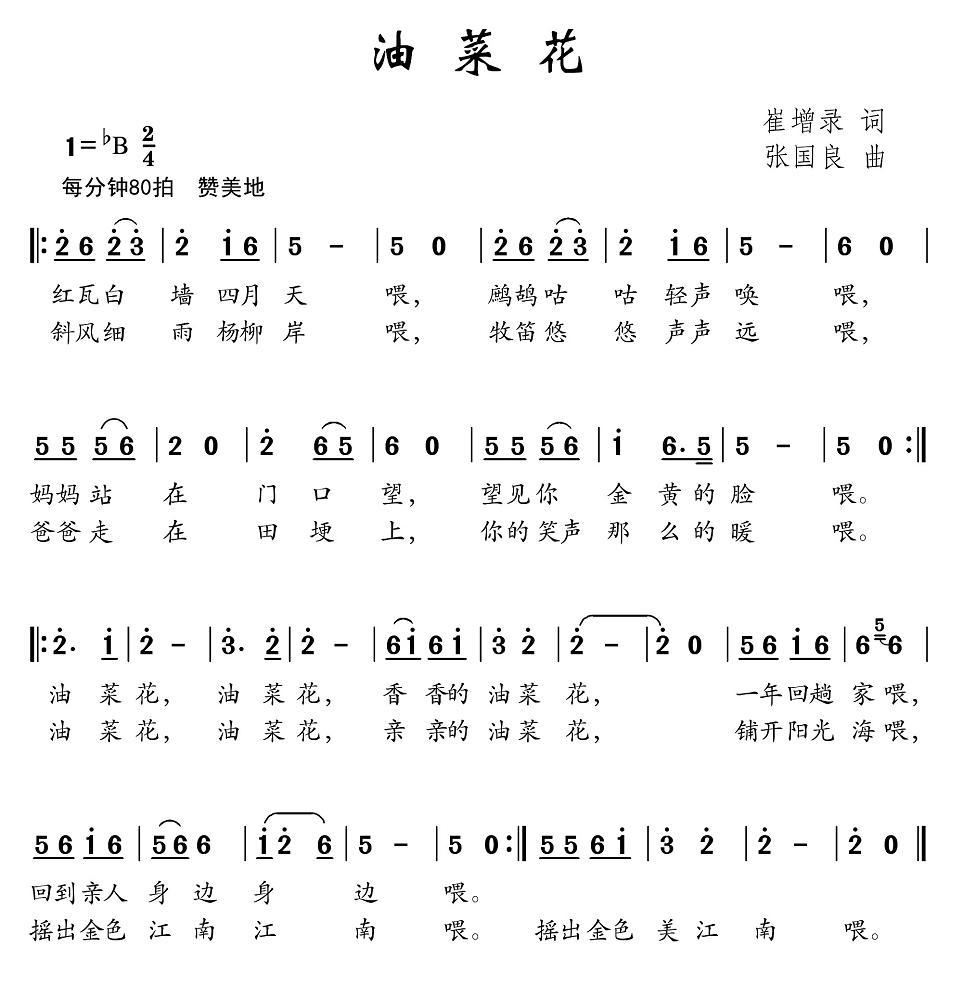 油菜花
崔增录 词
1=♭B 2/4
张国良 曲
每分钟80拍 赞美地
‖: 2̇ 6 2̇ 3̇ | 2̇ 1̇ 6 | 5 - | 5 0 | 2̇ 6 2̇ 3̇ | 2̇ 1̇ 6 | 5 - | 6 0 |
红瓦白 墙 四月 天 喂， 鹧鸪咕 咕 轻声 唤 喂，
斜风细 雨 杨柳 岸 喂， 牧笛悠 悠 声声 远 喂，
5 5 5 6 | 2 0 | 2̇ 6 5 | 6 0 | 5 5 5 6 | 1̇ 6. 5 | 5 - | 5 0 :‖
妈妈站 在 门 口 望， 望见你 金 黄的脸 喂。
爸爸走 在 田 埂 上， 你的笑声 那 么的暖 喂。
‖: 2̇. 1̇ | 2̇ - | 3̇. 2̇ | 2̇ - | 6 1̇ 6 1̇ | 3̇ 2̇ | 2̇ - | 2̇ 0 | 5 6 1̇ 6 | 6 5 6 |
油 菜花， 油 菜花， 香 香的 油菜 花， 一年回趟 家喂，
油 菜花， 油 菜花， 亲 亲的 油菜 花， 铺开阳光 海喂，
5 6 1̇ 6 | 5 6 6 | 1̇ 2̇ 6 | 5 - | 5 0 :‖ 5 5 6 1̇ | 3̇ 2̇ | 2̇ - | 2̇ 0 ‖
回到亲人 身 边 身 边 喂。
摇出金色 江 南 江 南 喂。 摇出金色 美 江 南 喂。